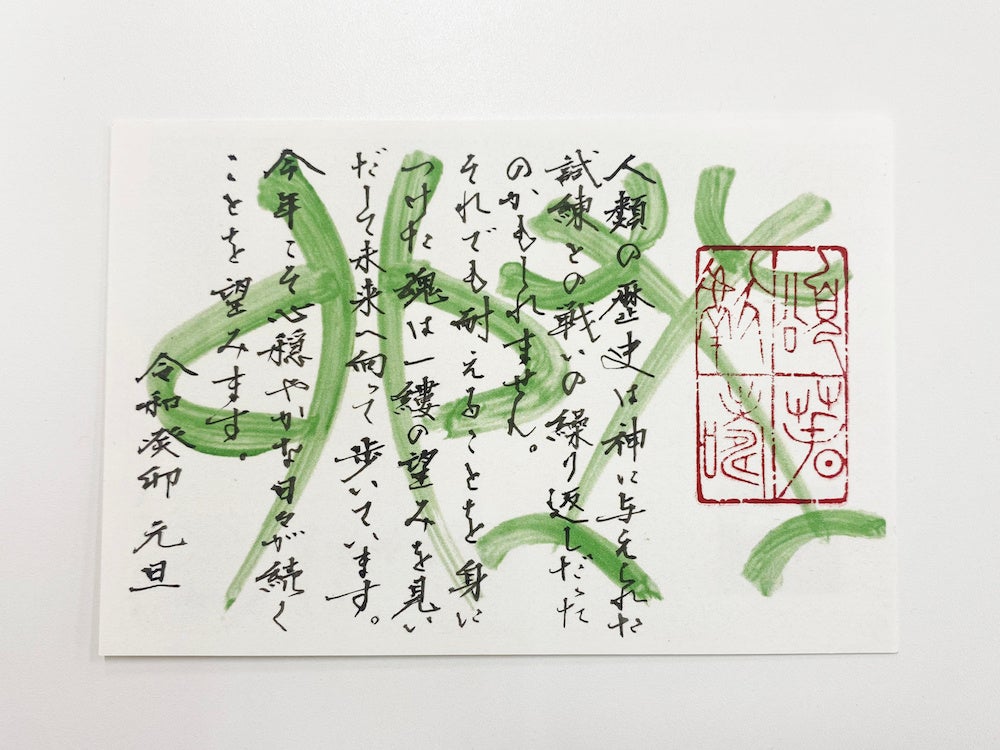 人類の歴史は神に与えられた
試練との戦いの繰り返しだった
のかもしれません。
それでも耐えることを身に
つけた魂は一縷の望みを見い
だして未来へ向って歩いています。
今年こそ心穏やかな日々が続く
ことを望みます。
令和癸卯 元旦